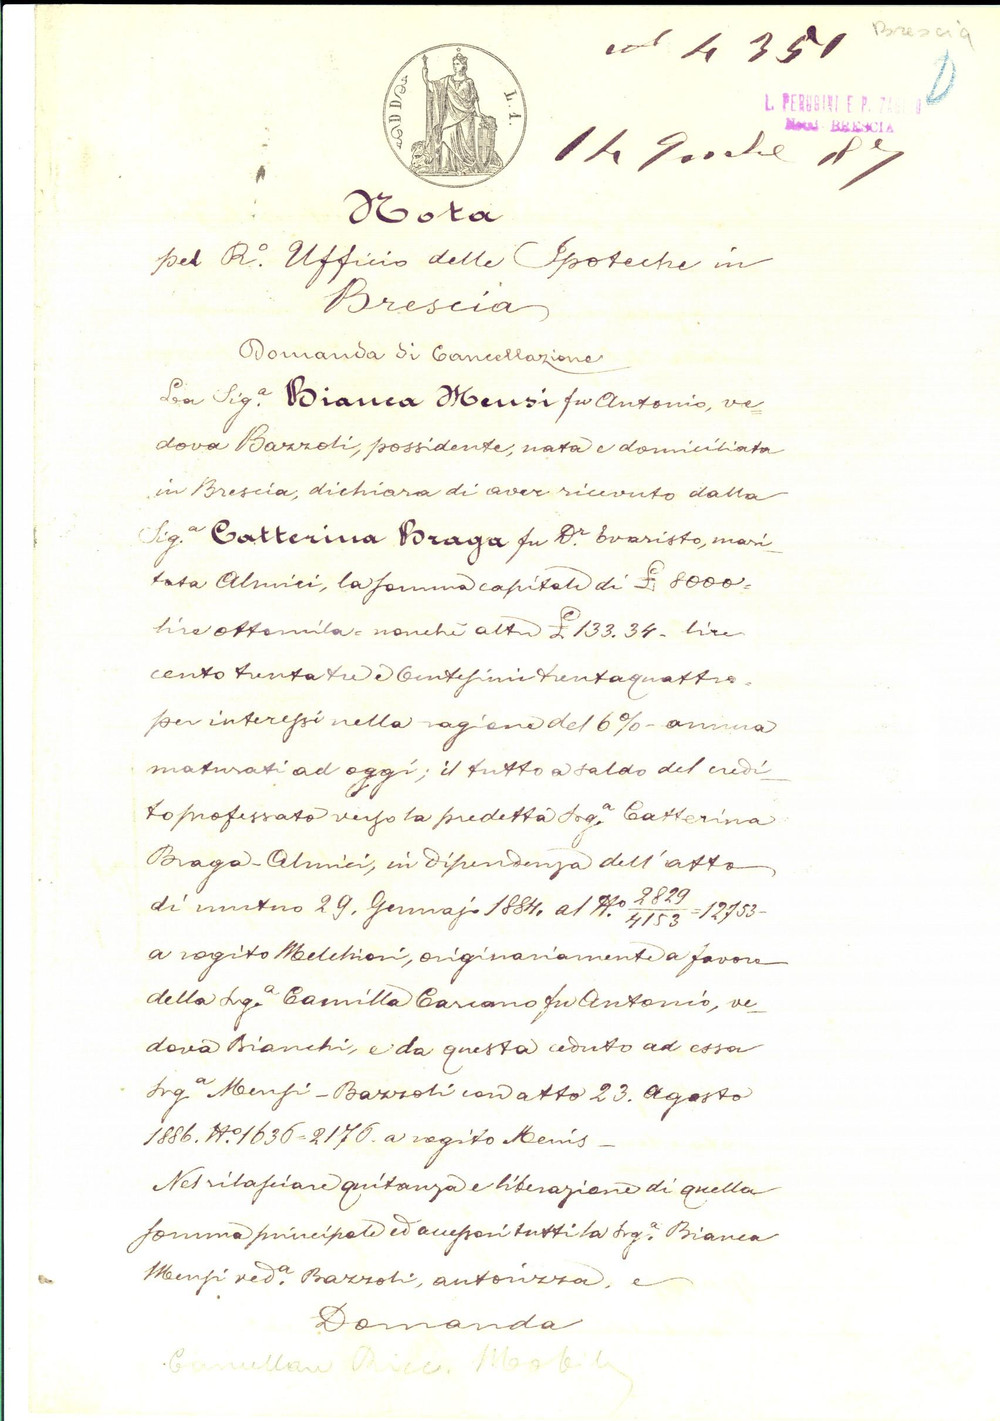 Brescia
vol 4 351
D
L. PERUGINI E P.
BRESCIA
D D
L. 1.
14 87
Nota
pel R.º Ufficio delle Ipoteche in
Brescia
Domanda di Cancellazione
La Sig.ª Bianca Mensi fu Antonio, ve=
dova Bazzoli, possidente, nata e domiciliata
in Brescia, dichiara di aver ricevuto dalla
Sig.ª Catterina Braga fu D.r Evaristo, mari-
tata Almici, la somma capitale di £ 8000=
lire ottomila = nonchè altre £ 133.34 - lire
cento trenta tre e Centesimi trentaquattro -
per interessi nella ragione del 6% - annua
maturati ad oggi; il tutto a saldo del credi-
to professato verso la predetta Sig.ª Catterina
Braga-Almici, in dipendenza dell'atto
di mutuo 29. Gennajo 1884. al N.º 2829/4153 = 12753 -
a rogito Melchiori, originariamente a favore
della Sig.ª Camilla Carcano fu Antonio, ve=
dova Bianchi, e da questa ceduto ad essa
Sig.ª Mensi - Bazzoli con atto 23. Agosto
1886. N.º 1636=2176. a rogito Menis -
Nel rilasciare quitanza e liberazione di quella
somma principale ed accessori tutti la Sig.ª Bianca
Mensi ved.ª Bazzoli, autorizza, e
Domanda